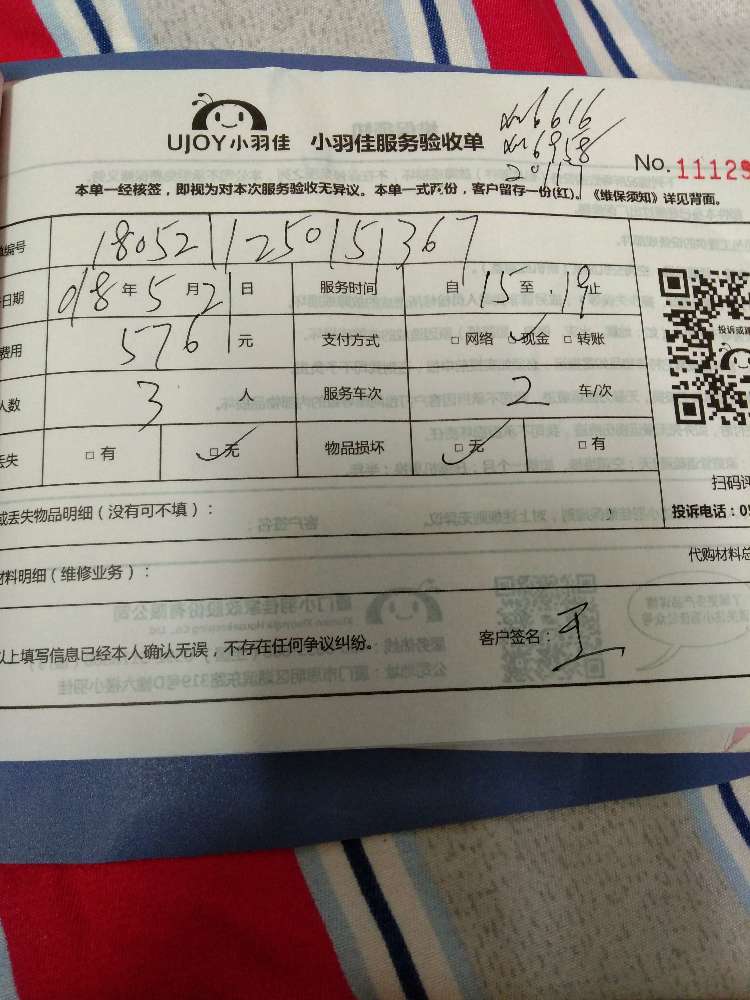 xm6616
xm6958
20117
UJOY小羽佳 小羽佳服务验收单
No.11129
本单一经核签，即视为对本次服务验收无异议。本单一式两份，客户留存一份(红)。《维保须知》详见背面。
编号 1805211250151367
日期 018年5月21日 服务时间 自15至，19止
费用 576元 支付方式 □网络 □现金 □转账
人数 3人 服务车次 2 车/次
丢失 □有 □无 物品损坏 □无 □有
投诉或
扫码评
或丢失物品明细（没有可不填）：
投诉电话：05
材料明细（维修业务）：
代购材料总
以上填写信息已经本人确认无误，不存在任何争议纠纷。 客户签名：王